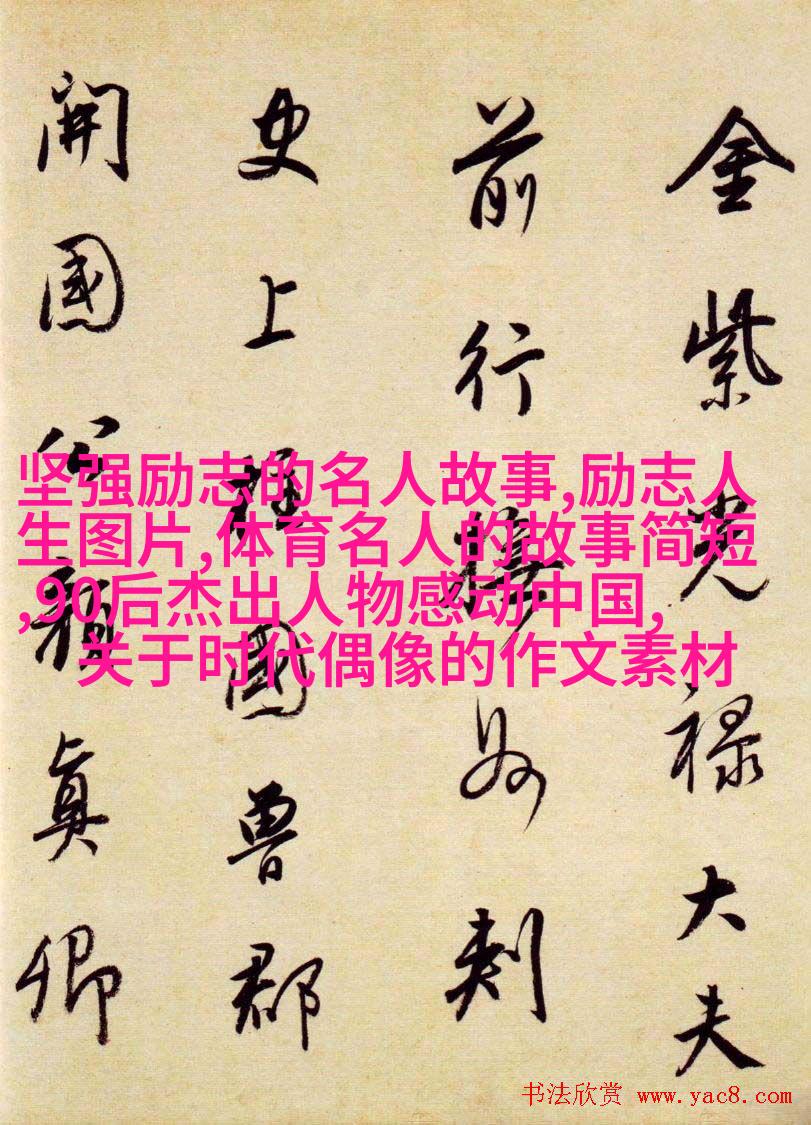 金紫光禄大夫
前行撫州刺
史上柱國魯郡
開國公顏眞卿
坚强励志的名人故事,励志人
生图片,体育名人的故事简短
,90后杰出人物感动中国,
关于时代偶像的作文素材
书法欣赏 www.yac8.com